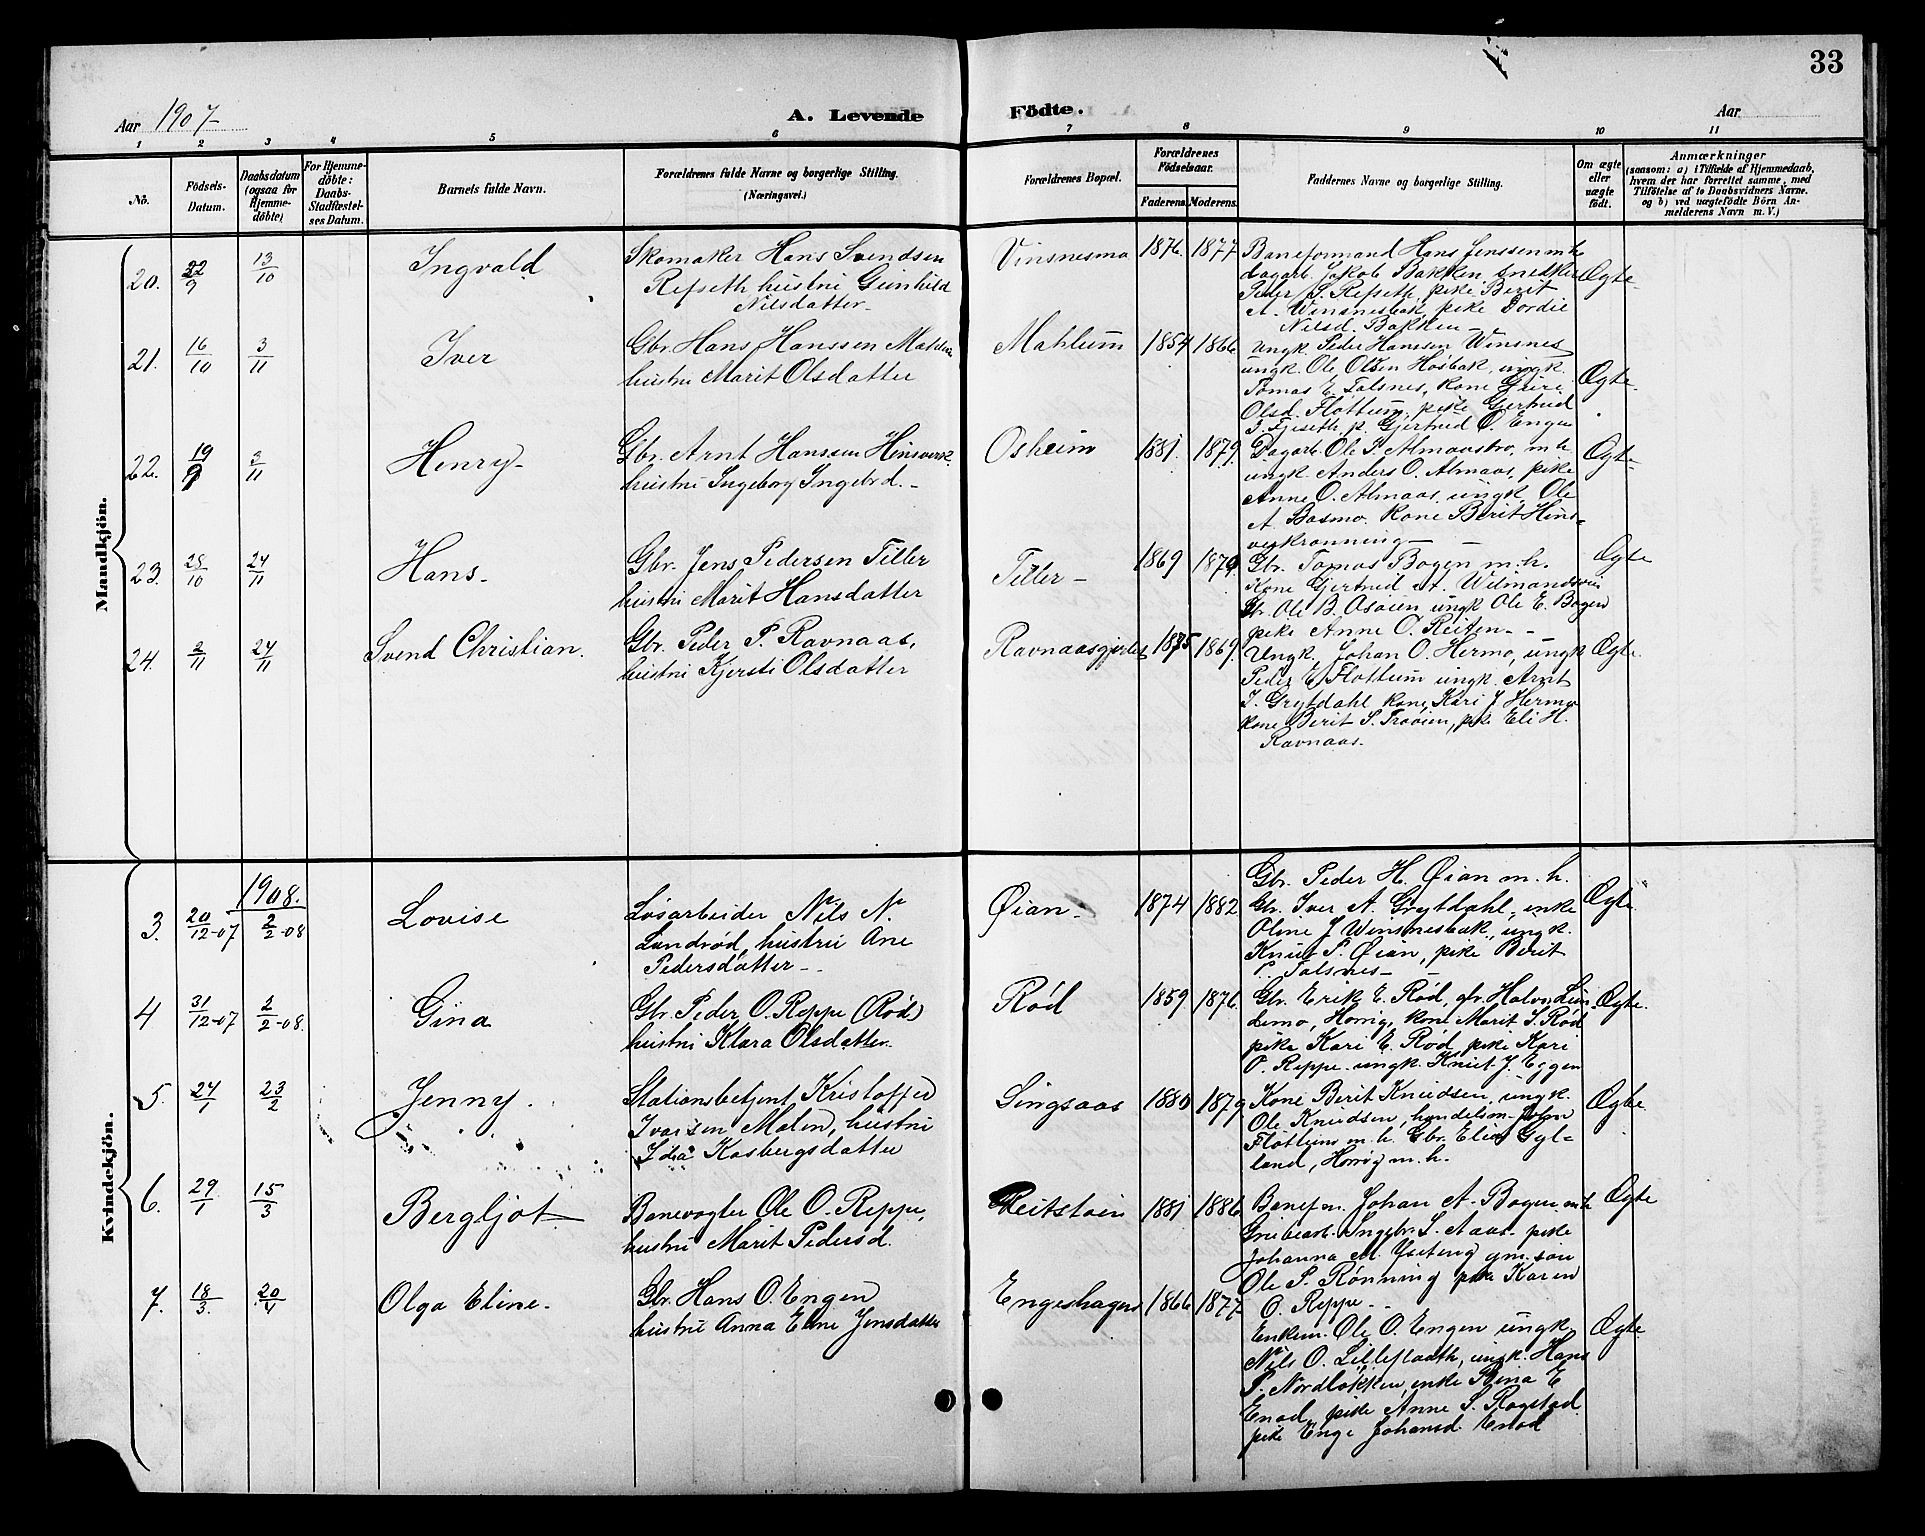 33
Aar 1907
A. Levende Födte.
Aar
1 2 3 4 5 6 7 8 9 10 11
No.
Födsels-
Datum.
Daabsdatum
(ogsaa for
Hjemme-
döbte)
For Hjemme-
döbte:
Daabs-
Stadfæstel-
ses Datum.
Barnets fulde Navn.
Forældrenes fulde Navne og borgerlige Stilling.
(Næringsvei.)
Forældrenes Bopæl.
Forældrenes
Födselsaar.
Faderens. Moderens.
Faddernes Navne og borgerlige Stilling.
Om ægte
eller
uægte
födt.
Anmærkninger
(saasom: a) i Tilfælde af Hjemmedaab,
hvem der har forrettet samme, med
Tilföielse af to Daabsvidners Navne.
og b) ved uægtefödte Börn An-
melderens Navn m. V.)
Mandkjön.
20. 22/9 13/10 Ingvald
Skomaker Hans Svendsen
Refseth hustru Gunhild
Nilsdatter
Vinsnesmo 1876. 1877
Baneformand Hans Jenssen m.h.
dagarb. Jakob Bakken, snedker
Peder S. Refseth, pike Berit
A. Winsnesbak, pike Dordie
Nilsd. Bakken
Ægte
21. 16/10 3/11 Iver
Gbr. Hans Hanssen
hustru Marit Olsdatter
Mahlum 1854 1866
ungk. Peder Hanssen Winsnes
ungk. Ole Olsen Høsbak, ungk.
Tomas E. Talsnes, kone Guri
Olsd. Flottum, pike Gjertrud
J. Fjeseth, p. Gjertrud O. Engen
Ægte
22. 19/9 3/11 Henry
Gbr. Arnt Hanssen Hinsverk
hustru Ingeborg Ingebr.d.
Osheim 1881. 1879.
Dagarb. Ole P. Almaasbro, m.h.
ungk. Anders O. Almaas, pike
Anne O. Almaas, ungk. Ole
A. Basmo. Kone Berit Hins-
verkrønning
Ægte
23. 28/10 24/11 Hans.
Gbr. Jens Pedersen Tiller
hustru Marit Hansdatter
Tiller 1869 1879
Gbr. Tomas Bogen m.h.
Kone Gjertrud A. Wilmandsøien
Gbr. Ole B. Asøien ungk Ole E. Bogen
pike Anne O. Reiten
Ægte
24. 2/11 24/11 Svend Christian.
Gbr. Peder P. Ravnaas,
hustru Kjersti Olsdatter
Ravnaasgjerdet 1875 1869.
Ungk. Johan O. Hermo, ungk
Peder E. Flottum ungk. Arnt
I. Grytdahl kone Kari J Hermo
kone Berit S. Traøien, pike Eli H.
Ravnaas.
Ægte
Kvindekjön.
1908.
3. 20/12-07 2/2-08 Lovise
Løsarbeider Nils N.
Lundrød, hustru Ane
Pedersdatter
Øian 1874 1882
Gbr. Peder H. Øian m. h.
Gbr. Iver A. Grytdahl, enke
Oline J Winsnesbak, ungk.
Knut P. Øian, pike Berit
P. Talsnes
Ægte
4 31/12-07 2/2-08. Gina
Gbr. Peder O. Reppe (Rød)
hustru Klara Olsdatter
Rød 1859 1876
Gbr. Erik E. Rød, gbr. Halvor Lun-
demo, Horrig, kone Marit S. Rød
pike Kari E. Rød pike Kari
O. Reppe. ungk. Knut J. Eggen
Ægte.
5. 24/1 23/2 Jenny.
Stationsbetjent Kristoffer
Ivarsen Malen, hustru
Ida Kasbergsdatter
Singsaas 1880 1879
Kone Berit Knudsen, ungk.
Ole Knudsen, handelsm. John
Flottum m.h. Gbr. Elias Gyl-
land, Horrig m.h.
Ægte
6. 29/1 15/3 Bergljot
Banevogter Ole O. Reppe,
hustru Marit Pedersd.
Reitstøien 1881 1886
Banefm. Johan A. Bogen m.h.
Grubearb. Ingebr. S. Aaas pike
Johanna M. gm. søn
Ole P. Rønning pike Karen
O. Reppe
Ægte
7. 18/3. 20/4 Olga Eline.
Gbr. Hans O. Engen
hustru Anna Eline Jensdatter
Engeshagen 1866 1877
Enkem. Ole O. Engen ungk.
Nils O. Lillefloath, ungk. Hans
P. Nordløkken, enke Stina E
Enod, pike Anne S. Rogstad
pike Enge Johansd. Enod
Ægte